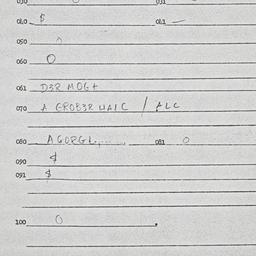 030 031
040 $ 041 —
050
060 O
061 D3R MOGt
070 A GROB3R HAIC / ALC
080 AGORGL, ...... 081 O
090 $
091 $
100 O